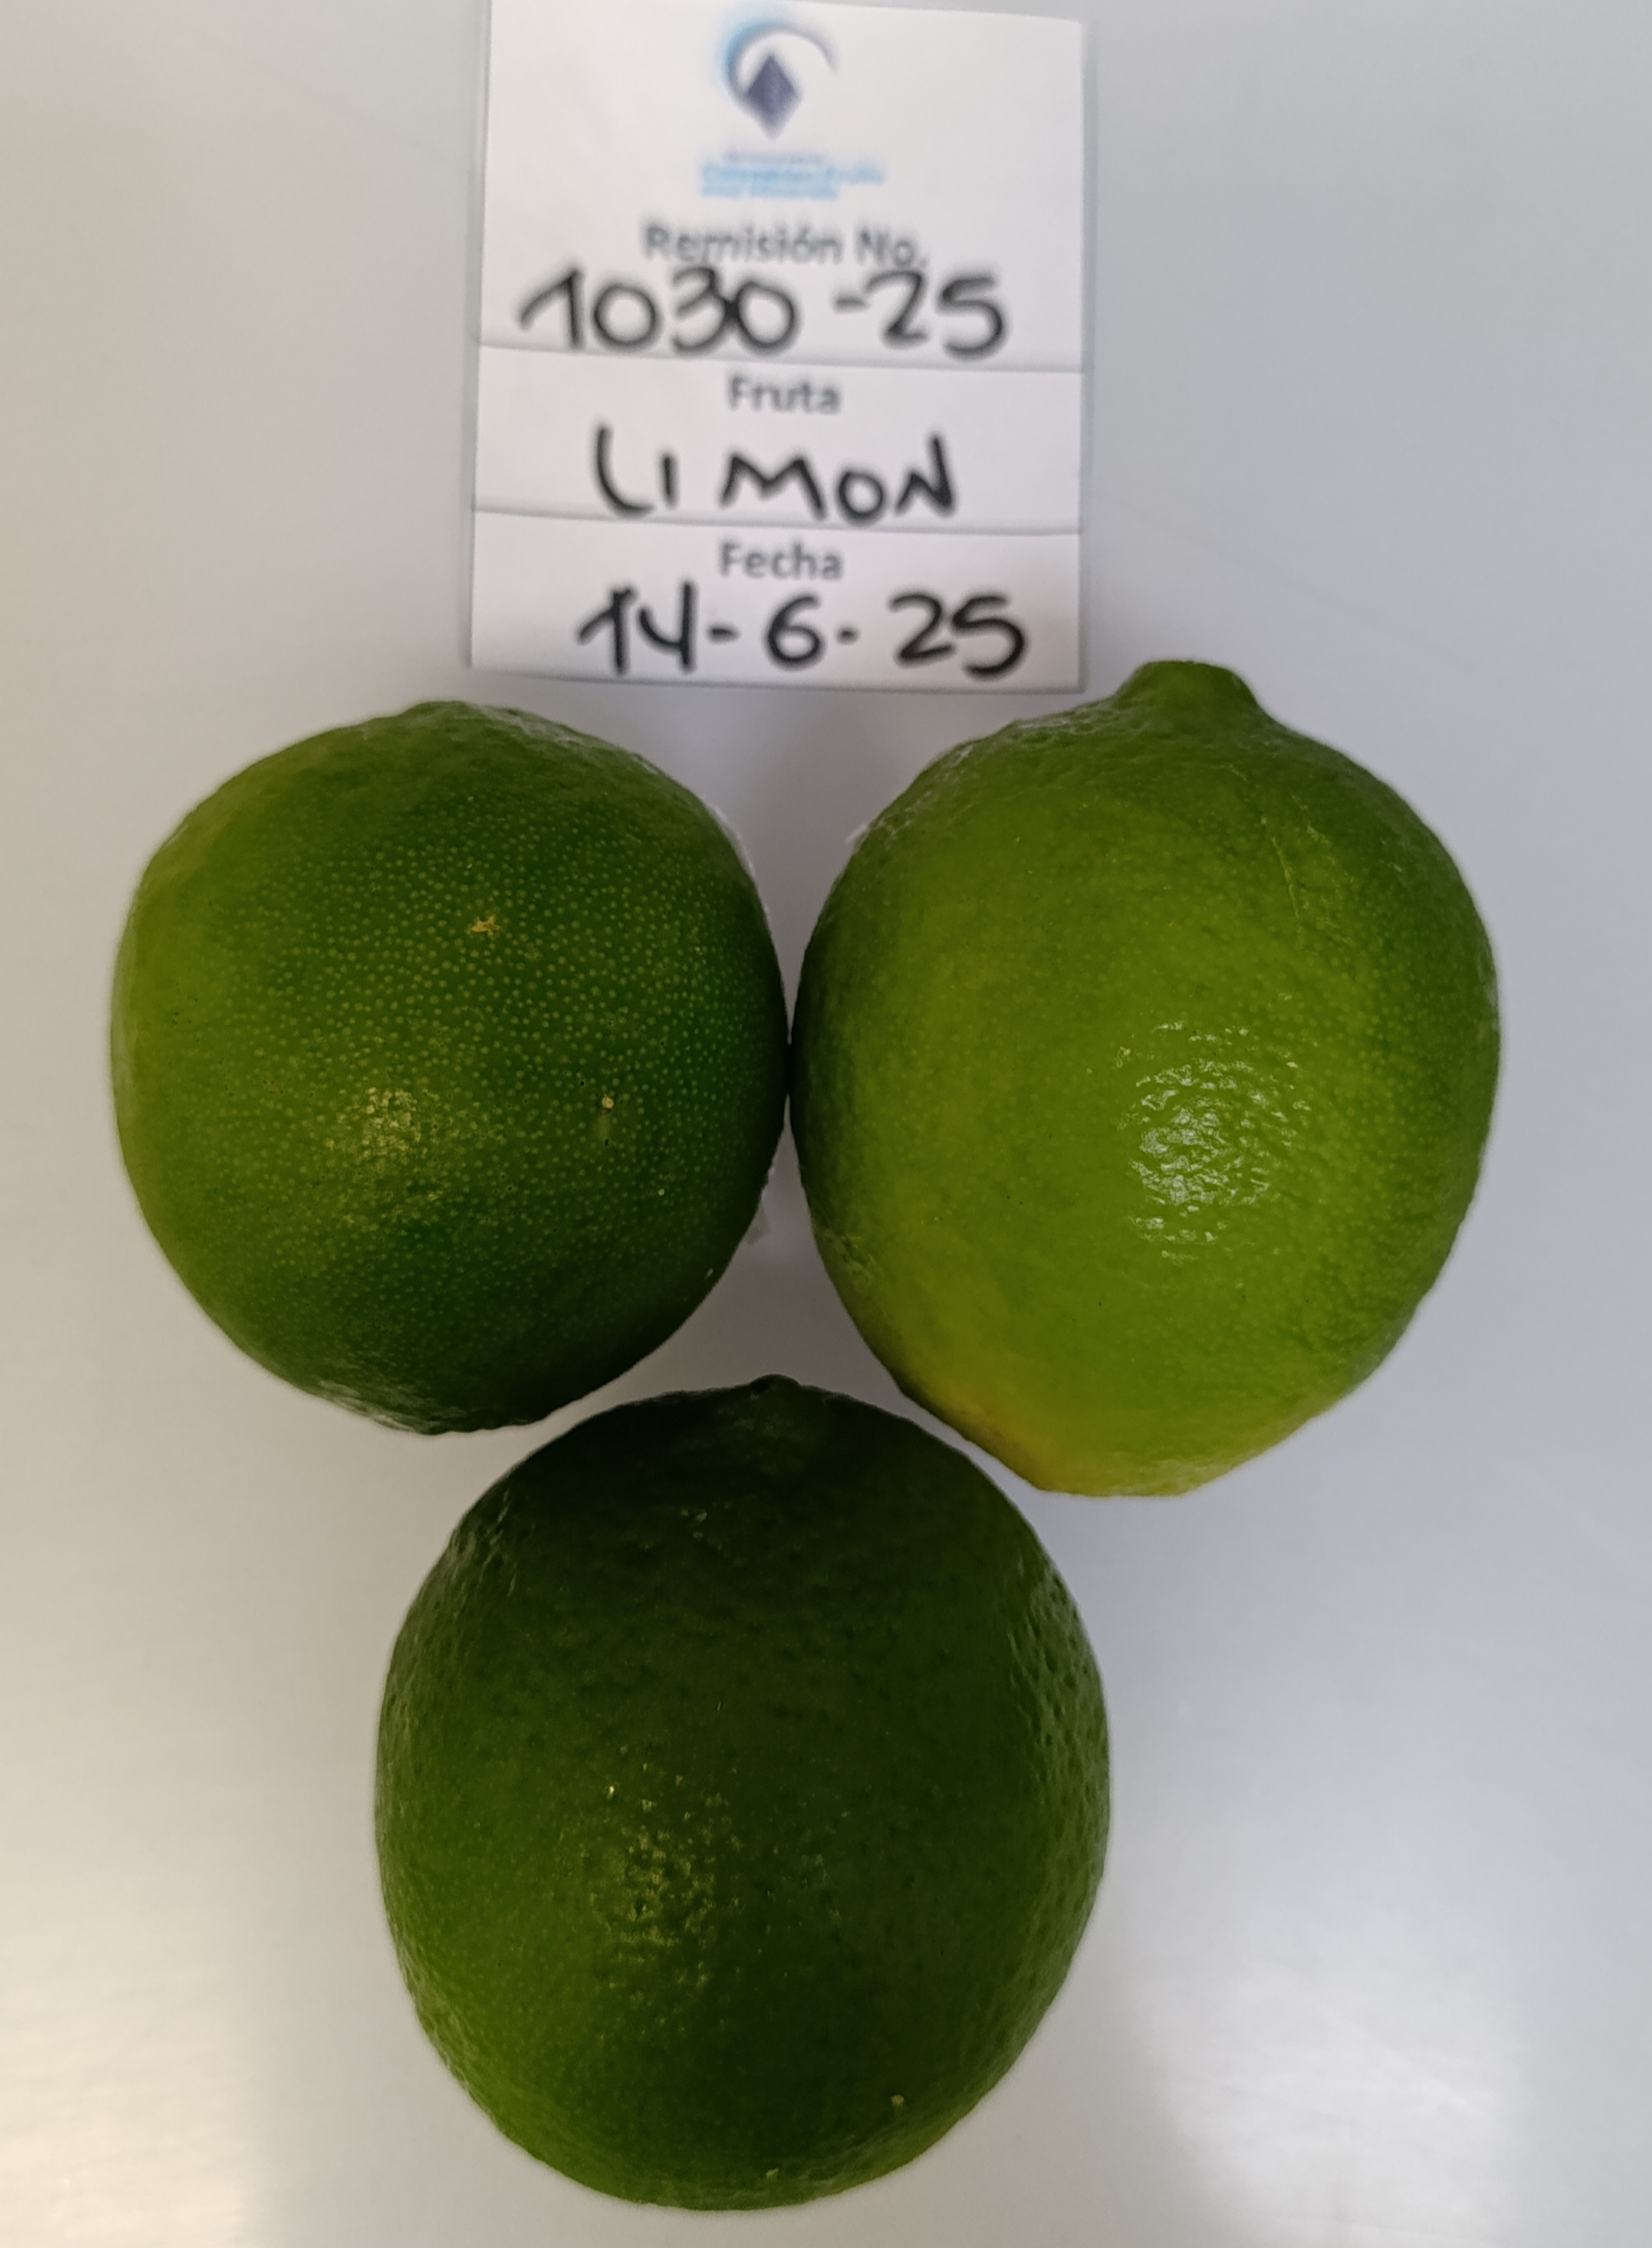 Remisión No.
1030-25
Fruta
LIMON
Fecha
14-6-25